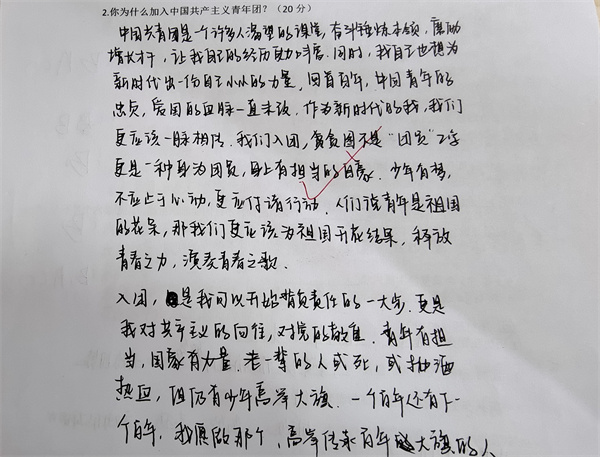 2.你为什么加入中国共产主义青年团？（20分）
中国共青团是个许多人渴望的课堂，奋斗锤炼本领，磨励
增长才干，让我自己的经历更加丰富。同时，我自己也想为
新时代出一份自己小小的力量，回首百年，中国青年的
忠贞，爱国的血脉一直未该。作为新时代的我，我们
更应该一脉相传。我们入团，贪图不是“团员”2字
更是一种身为团员，身上有担当的自豪。少年有梦，
不应止于心动，更应付诸行动。人们说青年是祖国
的花朵，那我们更应该为祖国开花结果，释放
青春之力，演奏青春之歌。
入团，是我可以开始背负责任的一大步，更是
我对共产主义的向往，对党的敬重。青年有担
当，国家有力量。老一辈的人或死，或抛洒
热血，但仍有少年高举大旗。一个百年还有下一
个百年，我愿做那个，高举传承百年大旗的人